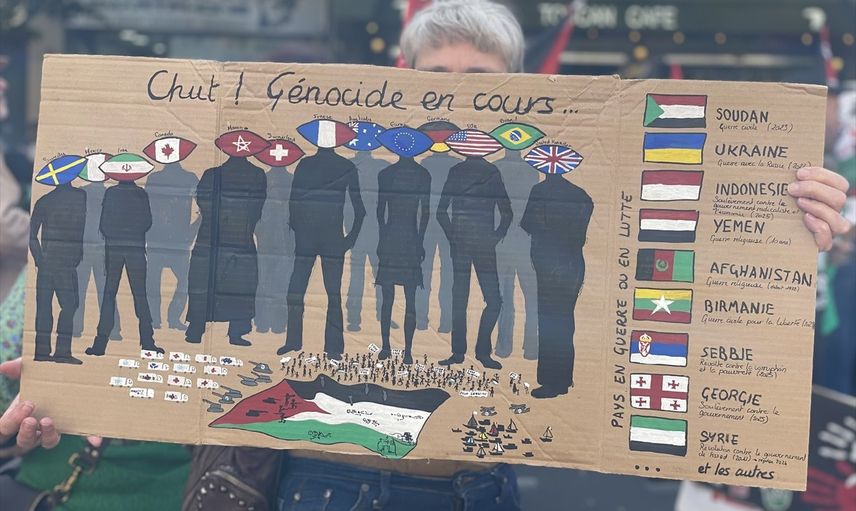 TOUCAN CAFE
Chut ! Génocide en cours...
Mexico
Iran
Canada
Maroc
Switzerland
France
Australia
Europe
Germany
USA
Brasil
United Kingdom
PAYS EN GUERRE OU EN LUTTE
SOUDAN
Guerre civile (2023)
UKRAINE
Guerre avec la Russie
INDONESIE
Soulèvement contre le
gouvernement
(2025)
YEMEN
Guerre religieuse (10 ans)
AFGHANISTAN
Guerre religieuse
BIRMANIE
Guerre civile pour la liberté
SERBIE
Révolte contre la corruption
et la pauvreté (2025)
GEORGIE
Soulèvement contre le
gouvernement
(2025)
SYRIE
Révolution contre le gouvernement
... et les autres